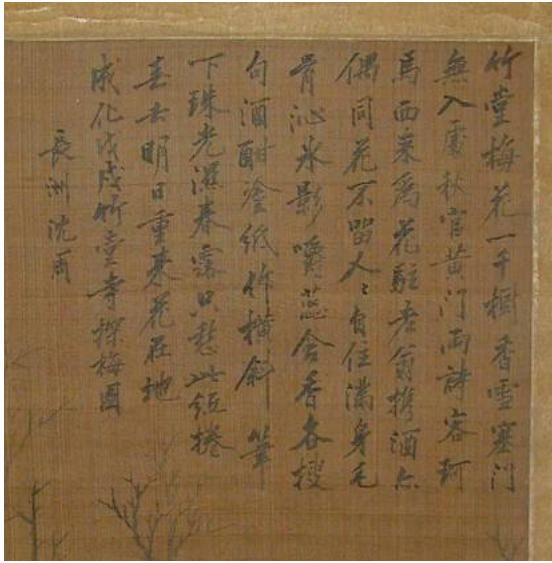 竹堂梅花一千樹香雪塞门
無入處秋官黄門兩詩客珂
馬西来爲花駐老翁携酒亦
偶同花不留人々自住滿身毛
骨沁氷影嚼蕊含香各搜
句酒酣塗紙作横斜筆
下珠光濕春露只愁此紙捲
春去明日重來花在地
成化戊戌竹堂寺探梅圖
長洲沈周